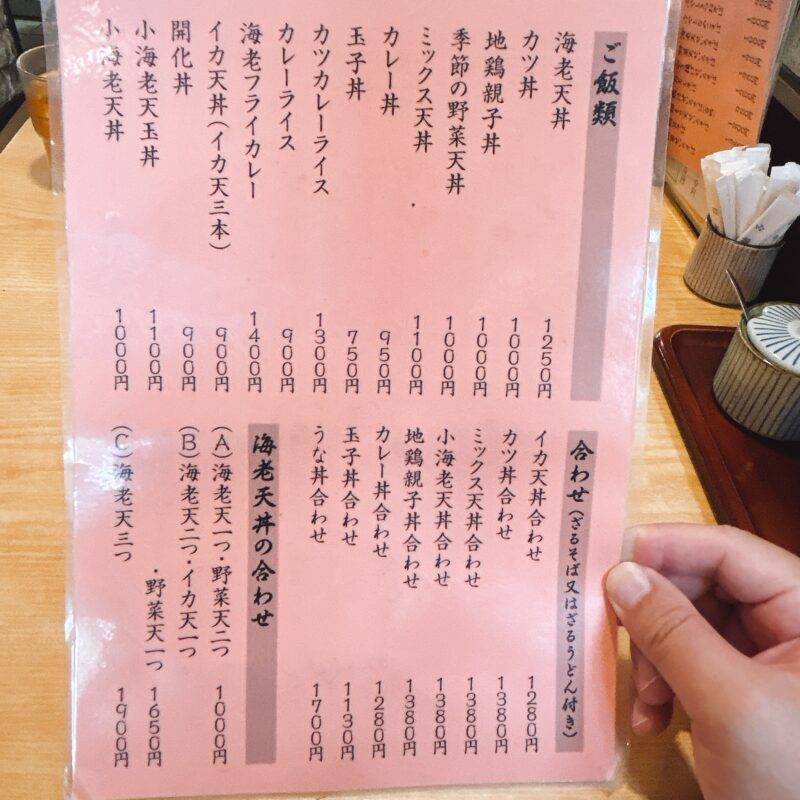 ご飯類
海老天丼 1250円
カツ丼 1000円
地鶏親子丼 1000円
季節の野菜天丼 1000円
ミックス天丼 1100円
カレー丼 950円
玉子丼 750円
カツカレーライス 1300円
カレーライス 900円
海老フライカレー 1400円
イカ天丼(イカ天三本) 900円
開化丼 900円
小海老天玉丼 1100円
小海老天丼 1000円
合わせ(ざるそば又はざるうどん付き)
イカ天丼合わせ 1280円
カツ丼合わせ 1380円
ミックス天丼合わせ 1380円
小海老天丼合わせ 1380円
地鶏親子丼合わせ 1380円
カレー丼合わせ 1280円
玉子丼合わせ 1130円
うな丼合わせ 1700円
海老天丼の合わせ
(A)海老天一つ・野菜天二つ 1000円
(B)海老天二つ・イカ天一つ
・野菜天一つ 1650円
(C)海老天三つ 1900円